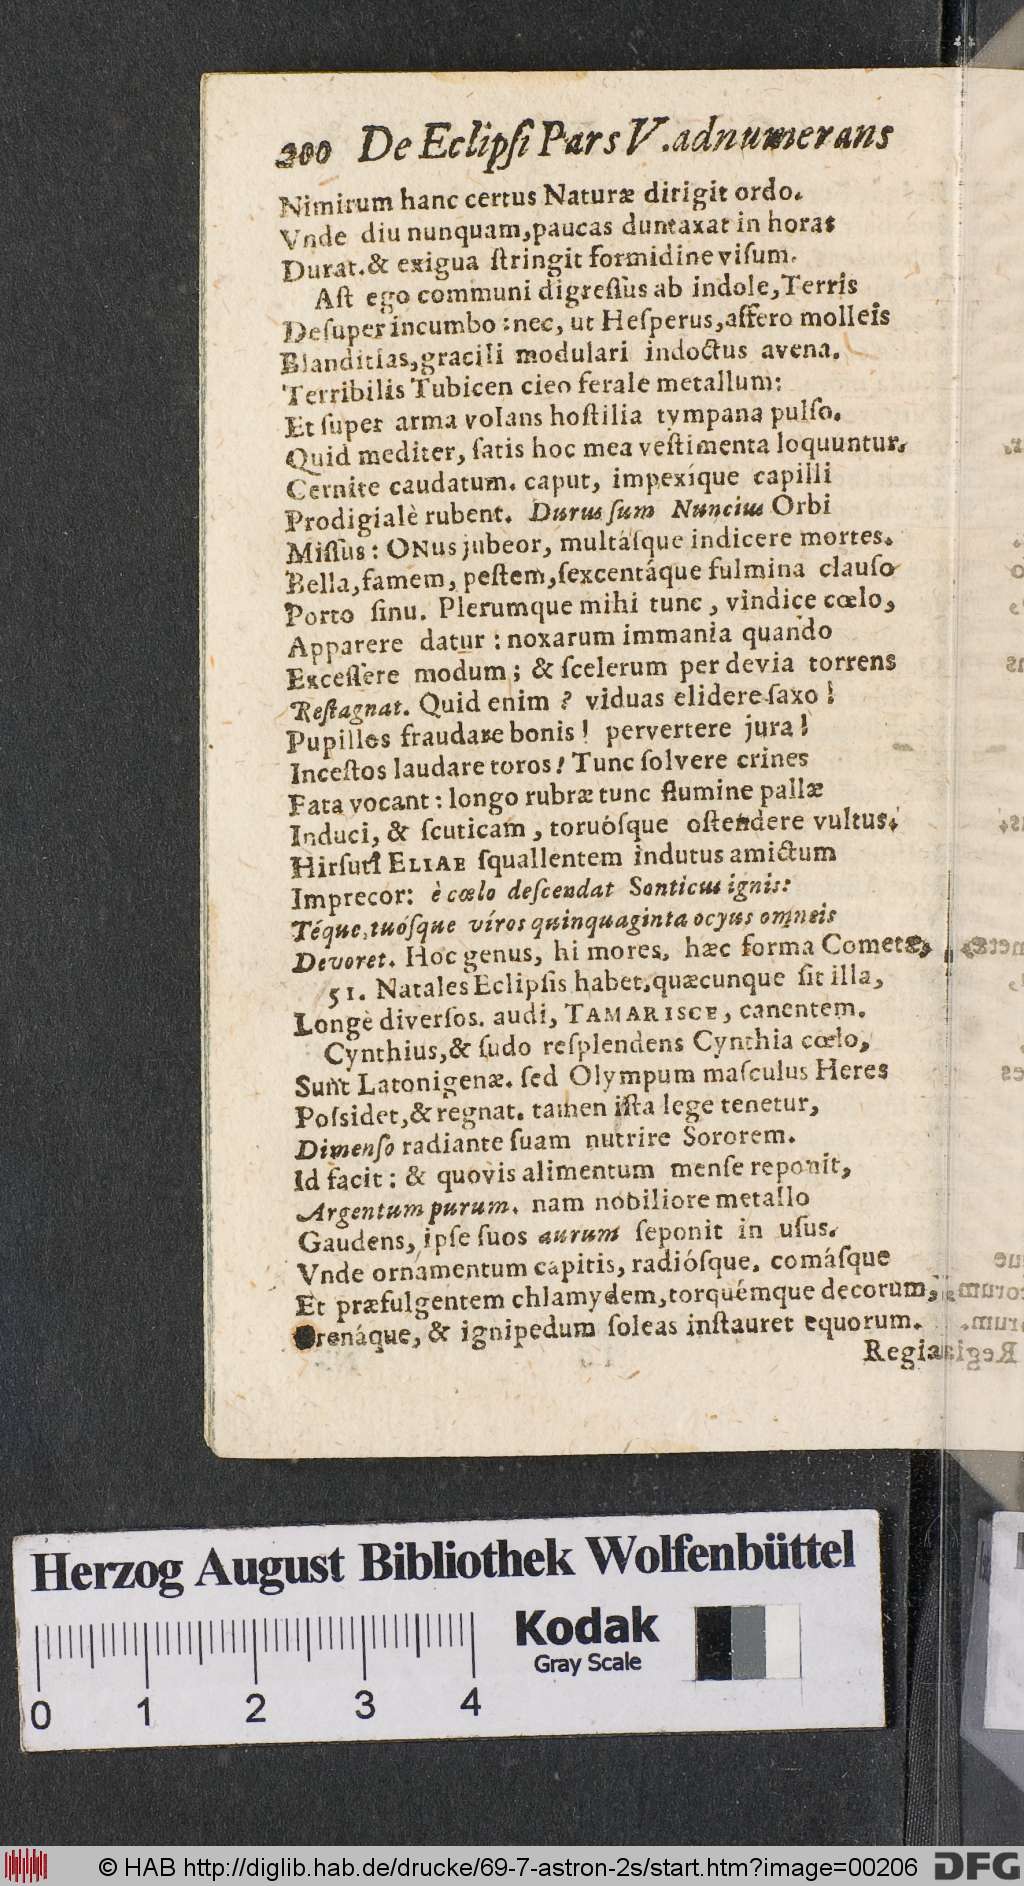 200 De Eclipſi Pars V. adnumerans
Nimirum hanc certus Naturæ dirigit ordo.
Vnde diu nunquam, paucas duntaxat in horas
Durat. & exigua ſtringit formidine viſum.
Aſt ego communi digreſſus ab indole, Terris
Deſuper incumbo: nec, ut Heſperus, affero molleis
Blanditias, gracili modulari indoctus avena.
Terribilis Tubicen cieo ferale metallum:
Et ſuper arma volans hoſtilia tympana pulſo.
Quid mediter, ſatis hoc mea veſtimenta loquuntur.
Cernite caudatum. caput, impexíque capilli
Prodigialè rubent. Durus ſum Nuncius Orbi
Miſſus: ONus jubeor, multáſque indicere mortes.
Bella, famem, peſtem, ſexcentáque fulmina clauſo
Porto ſinu. Plerumque mihi tunc, vindice cœlo,
Apparere datur: noxarum immania quando
Exceſſere modum; & ſcelerum per devia torrens
Reſtagnat. Quid enim? viduas elidere ſaxo!
Pupillos fraudare bonis! pervertere jura!
Inceſtos laudare toros! Tunc ſolvere crines
Fata vocant: longo rubræ tunc flumine pallæ
Induci, & ſcuticam, toruóſque oſtendere vultus.
Hirſuti ELIAE ſquallentem indutus amictum
Imprecor: è cœlo deſcendat Sonticus ignis:
Téque, tuóſque víros quinquaginta ocyus omneis
Devoret. Hoc genus, hi mores, hæc forma Cometæ,
51. Natales Eclipſis habet, quæcunque ſit illa,
Longè diverſos. audi, TAMARISCE, canentem.
Cynthius, & ſudo reſplendens Cynthia cœlo,
Sunt Latonigenæ. ſed Olympum maſculus Heres
Poſsidet, & regnat. tamen iſta lege tenetur,
Dimenſo radiante ſuam nutrire Sororem.
Id facit: & quovis alimentum menſe reponit,
Argentum purum. nam nobiliore metallo
Gaudens, ipſe ſuos aurum ſeponit in uſus.
Vnde ornamentum capitis, radióſque, comáſque
Et præfulgentem chlamydem, torquémque decorum,
renáque, & ignipedum ſoleas inſtauret equorum.
Regia
Herzog August Bibliothek Wolfenbüttel
Kodak
Gray Scale
0 1 2 3 4
© HAB http://diglib.hab.de/drucke/69-7-astron-2s/start.htm?image=00206 DFG